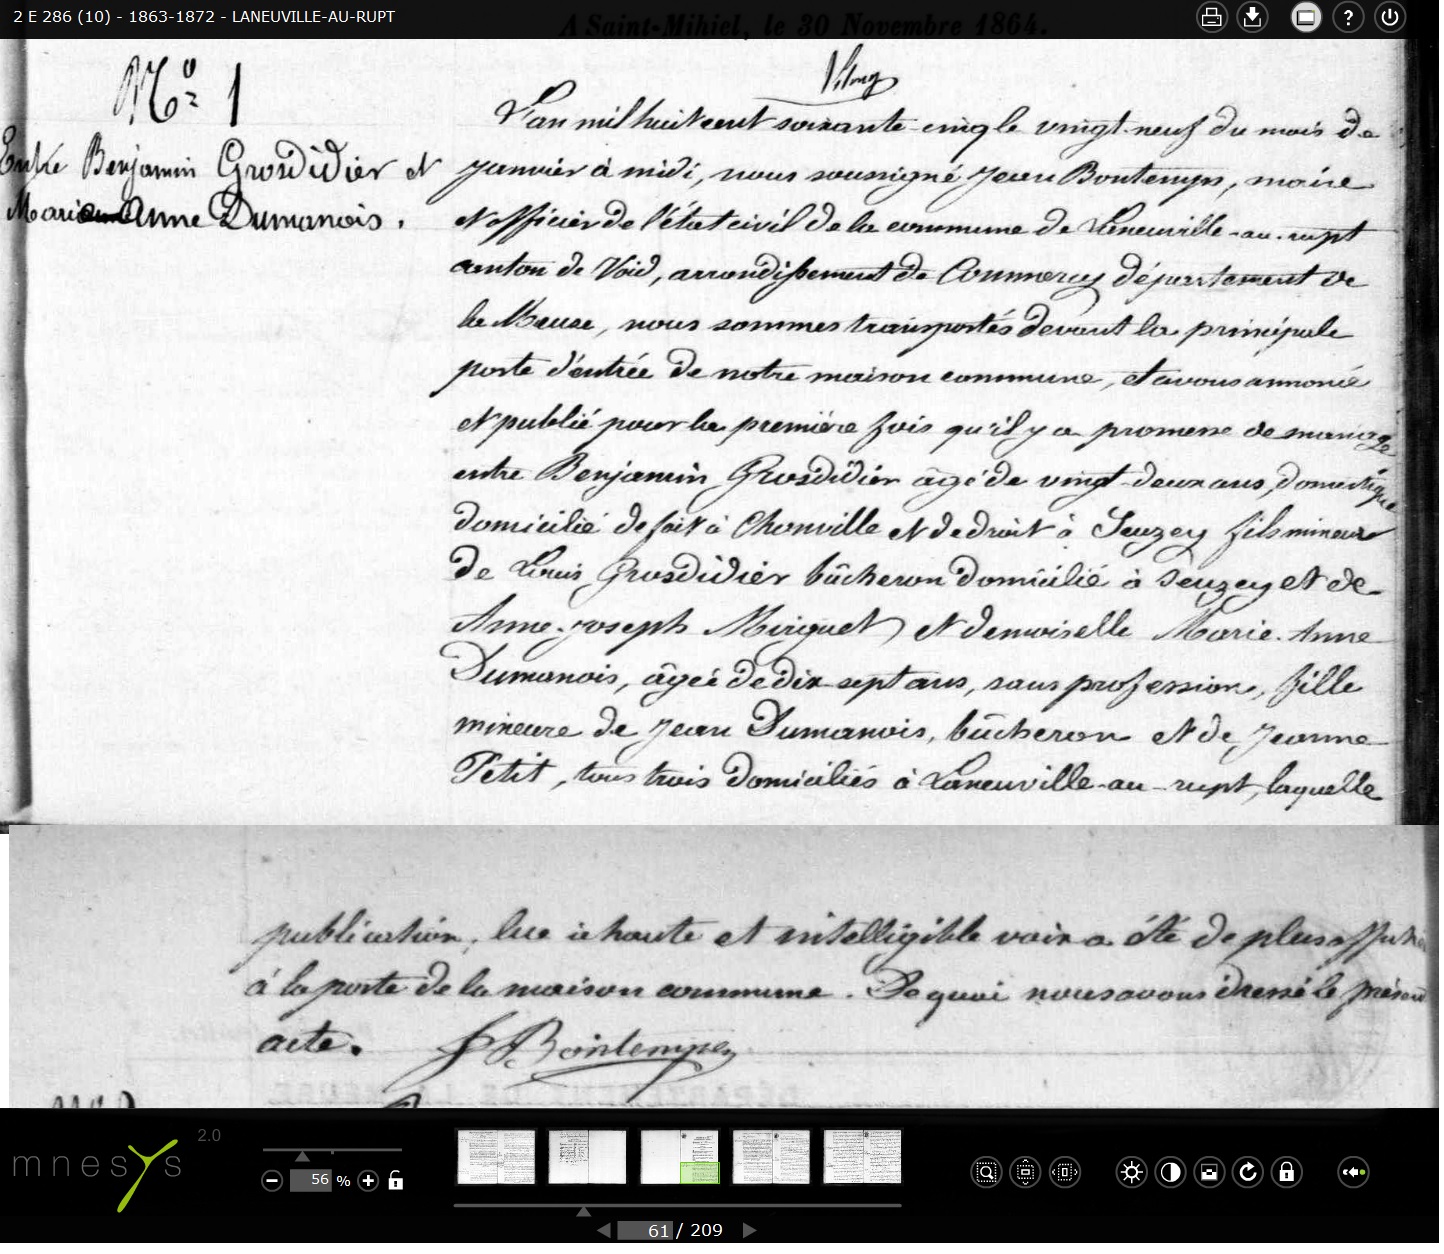 2 E 286 (10) - 1863-1872 - LANEUVILLE-AU-RUPT
A Saint-Mihiel, le 30 Novembre 1864.
No 1
Entre Benjamin Grosdidier et
Marie Anne Dumanois.
L'an mil huit cent soixante-cinq le vingt-neuf du mois de
Janvier à midi, nous soussigné Jean Bontemps, maire
et officier de l'état civil de la commune de Laneuville-au-rupt
canton de Void, arrondissement de Commercy département de
la Meuse, nous sommes transportés devant la principale
porte d'entrée de notre maison commune, et avons annoncé
et publié pour la première fois qu'il y a promesse de mariage
entre Benjamin Grosdidier âgé de vingt-deux ans, domestique
domicilié de fait à Chonville et de droit à Seuzey fils mineur
de Louis Grosdidier bûcheron domicilié à Seuzey et de
Anne-Joseph Miriguet et demoiselle Marie-Anne
Dumanois, âgée de dix sept ans, sans profession, fille
mineure de Jean Dumanois, bûcheron et de Jeanne
Petit, tous trois domiciliés à Laneuville-au-rupt, laquelle
publication, lue à haute et intelligible voix a été de plus affichée
à la porte de la maison commune. De quoi nous avons dressé le présent
acte. J Bontemps
DÉPARTEMENT DE LA MEUSE
mnesys 2.0
56 %
61 / 209